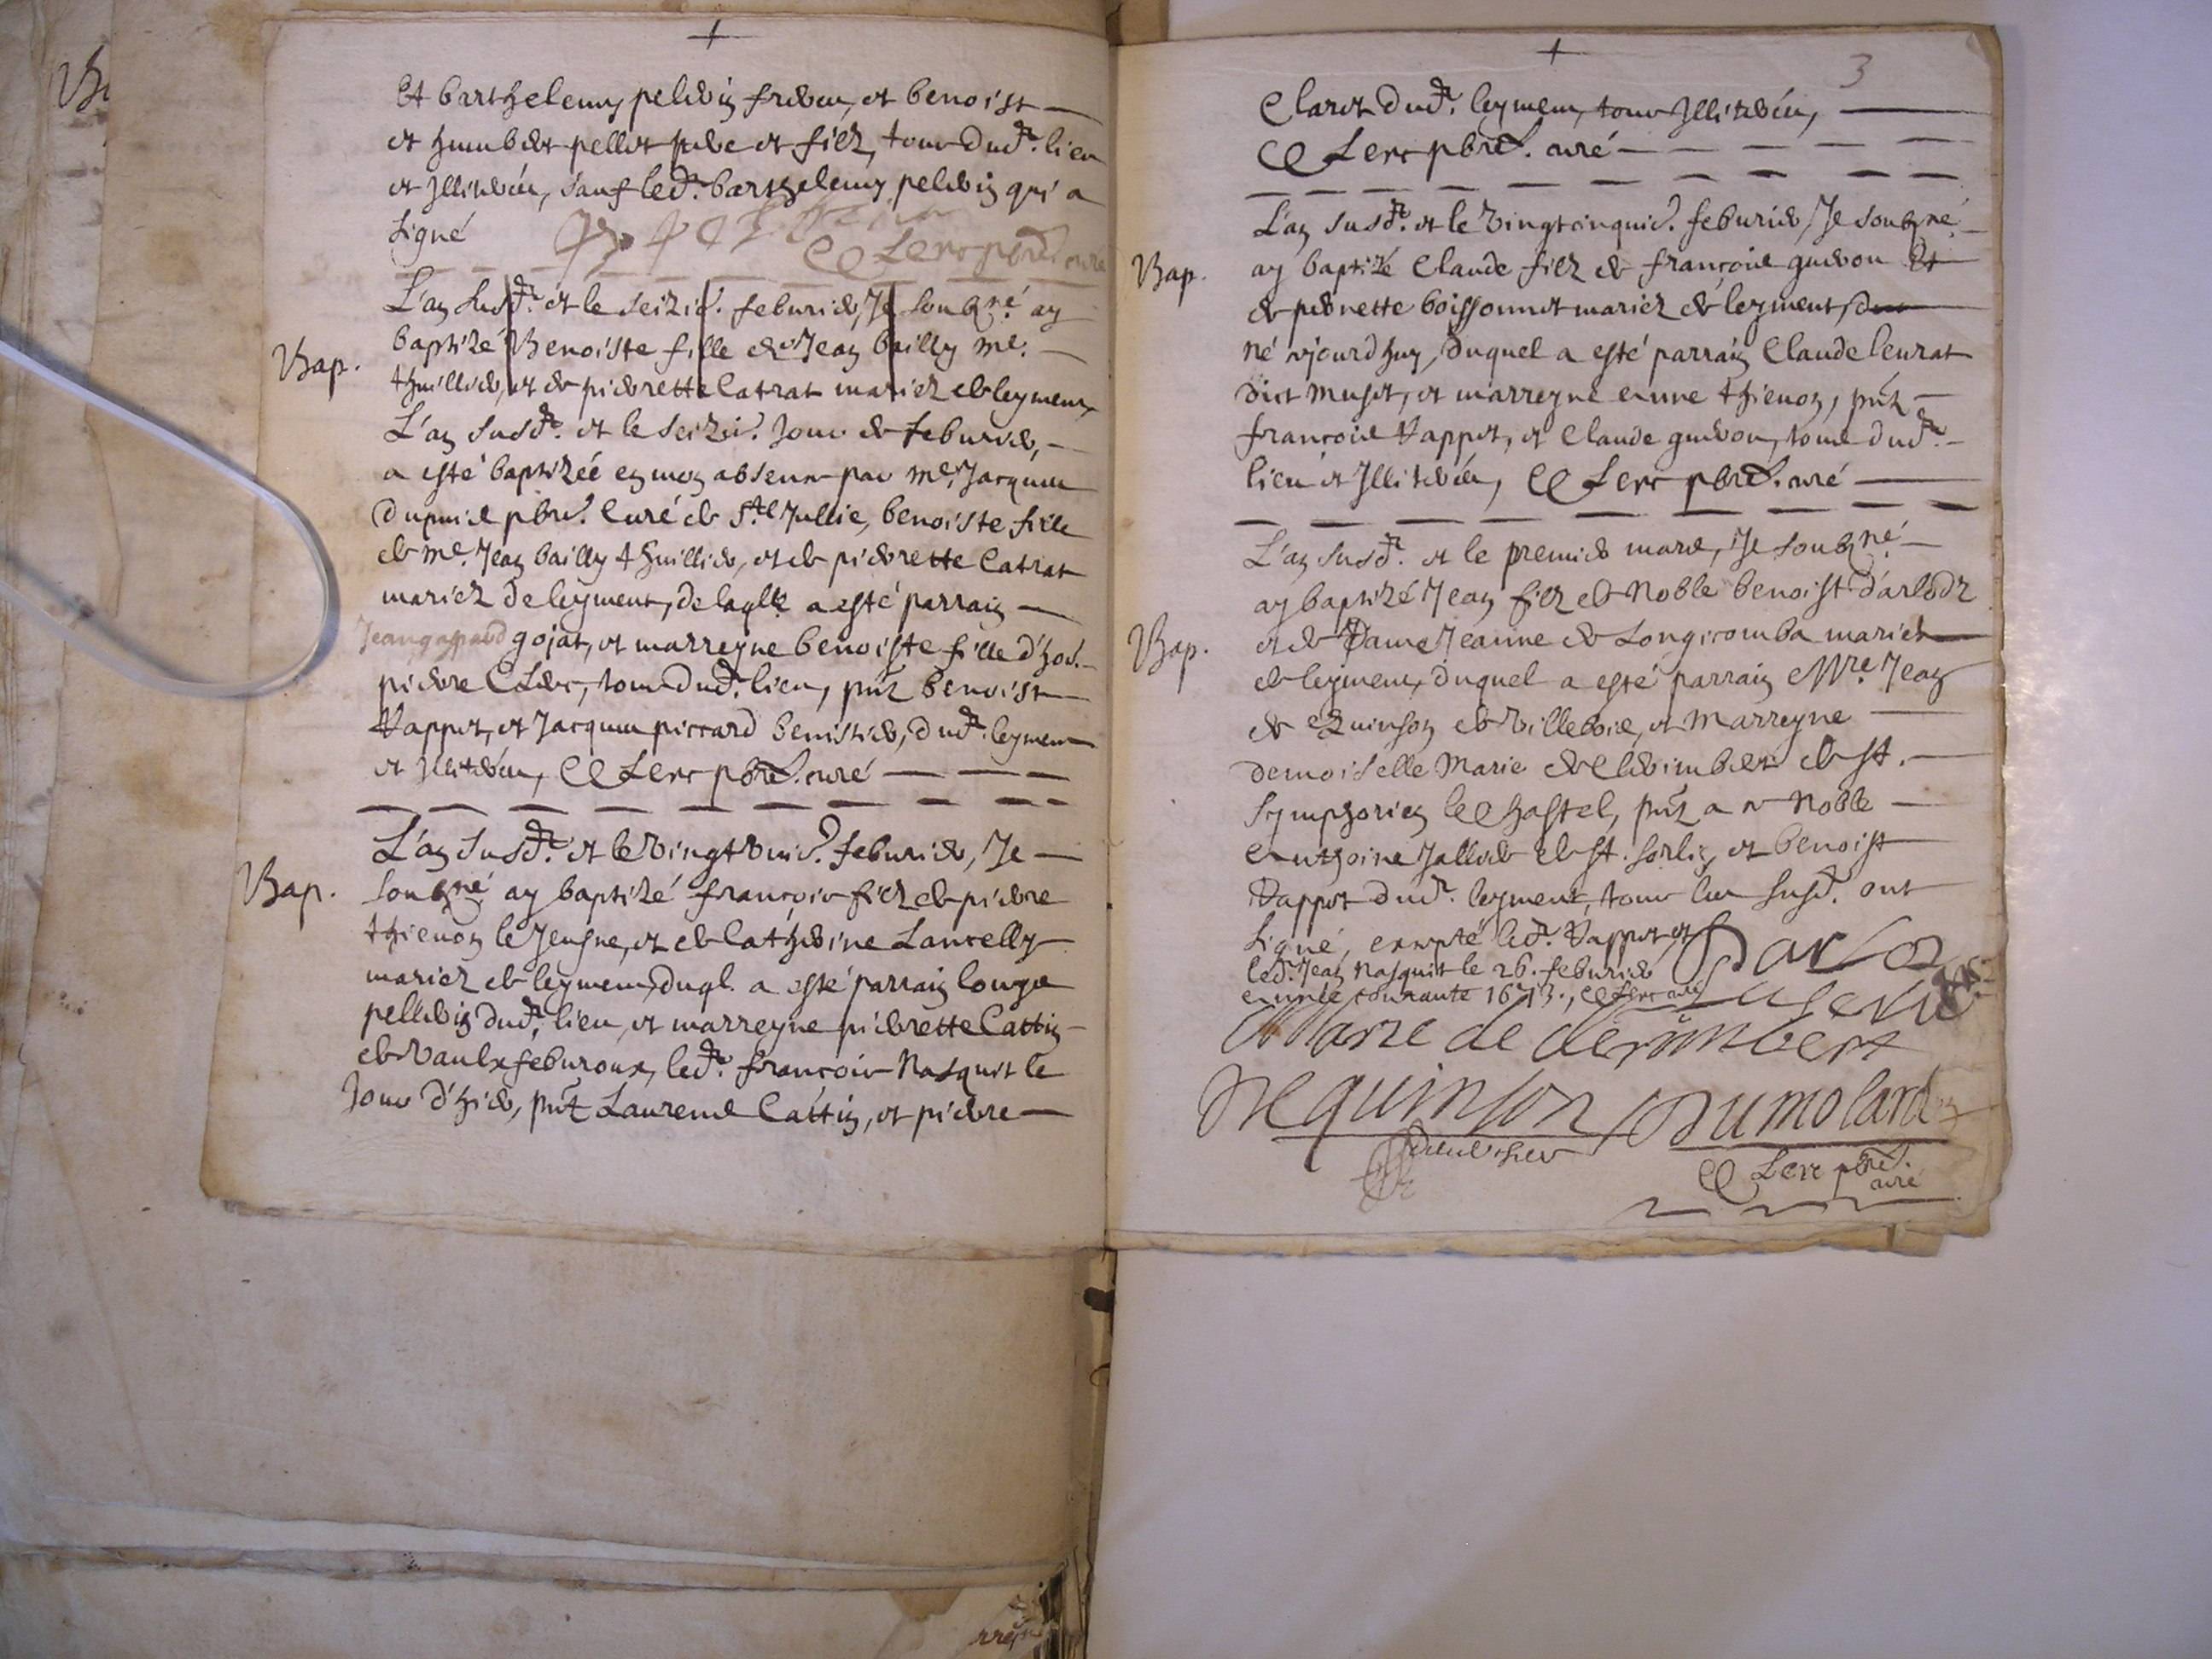 Et barthelemy peldrin freres, et benoist
et humbert pellet pere et filz, tous dud.t lieu
et Illiterés, sauf led.t barthelemy pelerin qui a
signé
C Clerc pbre. curé
L'an susd.t et le seizie. febvrier, Je soubz.né ay
Bap.
baptizé Benoiste fille de Jean bailly me.
thuillier, et de pierrette Catrat mariez de leyment,
L'an susd.t et le seizie. Jour de febvrier,
a esté baptizéé en mon absence par me. Jacques
dupuis pbre. Curé de S.te Jullie, benoiste fille
de me. Jean bailly thuillier, et de pierrette Catrat
mariez de leyment, de laqlle a esté parrain
Jean gaspard gojat, et marreyne benoiste fille d'ho.
pierre Clerc, tous dud.t lieu, pntz benoist
Vappet, et Jacques piccard benistier, dud.t leyment
et Illiterés, C Clerc pbre. curé
Bap.
L'an susd.t et le vingt uni.e febvrier, Je
soubz.né ay baptizé françois filz de pierre
thienon le Jeusne, et de Catherine Lancelly
mariez de leyment, duql. a esté parrain louys
pellerin dud.t lieu, et marreyne pierrette Cattin
de Vaulx febvroux, led.t françois Nasquit le
Jour d'hier, pntz Laurens Cattin, et pierre
3
Claret dud.t leyment, tous Illiterés,
C Clerc pbre. curé
L'an susd.t et le vingt cinquie. febvrier, Je soubz.né
Bap.
ay baptizé Claude filz de françois guerou Et
de pernette boissonnet mariez de leyment,
né ajourd'huy, duquel a esté parrain Claude leurat
dict muset, et marreyne anne thienon, pntz
françois Vappet, et Claude guerou, tous dud.t
lieu et Illiterés, C Clerc pbre. curé
L'an susd.t et le premier mars, Je soubz.né
ay baptizé Jean filz de Noble benoist d'arlodz
Bap.
et de Dame Jeanne de Longecomba mariez
de leyment, duquel a esté parrain M.re Jean
de Quinson de Villebois, et Marreyne
demoiselle Marie de Clerimbert de st.
Symphorien le Chastel, pntz a ce Noble
Anthoine Jallier de st. sorlin, et benoist
Vappet dud.t leyment, tous les susd. ont
signé, excepté led.t Vappet, et
led.t Jean Nasquit le 26. febvrier
année courante 1673., C Clerc curé
Darloz
Marie de clerimbert
De quinson Dumolard
C Clerc pbre.
curé